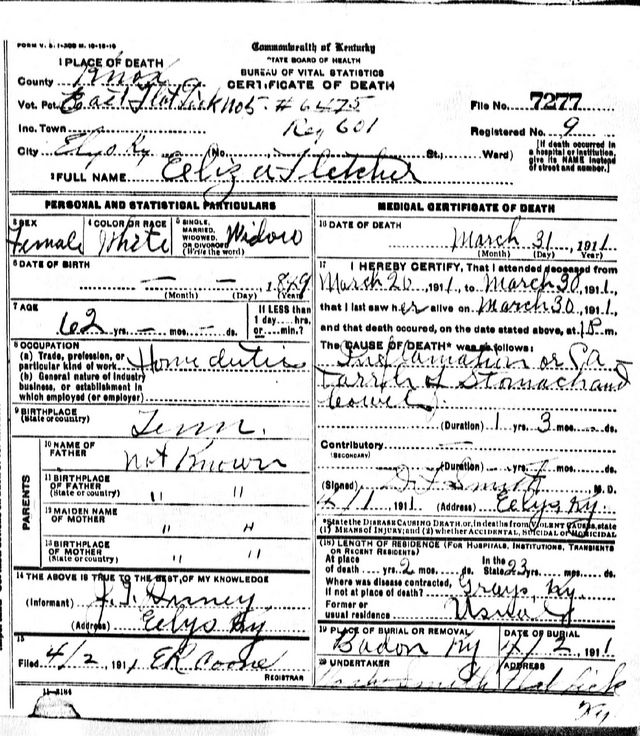 FORM V. S. 1-300 M. 10-10-10
Commonwealth of Kentucky
STATE BOARD OF HEALTH
BUREAU OF VITAL STATISTICS
CERTIFICATE OF DEATH
1 PLACE OF DEATH
County Knox
Vot. Pct. East Flat Lick No 5 # 6475
Reg 601
Inc. Town
City Elys Ky (No. St., Ward)
File No. 7277
Registered No. 9
[If death occurred in a hospital or institution, give its NAME instead of street and number.]
2 FULL NAME Eliza Fletcher
PERSONAL AND STATISTICAL PARTICULARS
3 SEX Female
4 COLOR OR RACE White
5 SINGLE, MARRIED, WIDOWED, OR DIVORCED (Write the word) Widow
6 DATE OF BIRTH — — 1849
(Month) (Day) (Year)
7 AGE 62 yrs. — mos. — ds.
If LESS than 1 day.... hrs. or.... min.?
8 OCCUPATION
(a) Trade, profession, or particular kind of work Home duties
(b) General nature of industry business, or establishment in which employed (or employer)
9 BIRTHPLACE
(State or country) Tenn.
PARENTS
10 NAME OF FATHER not Known
11 BIRTHPLACE OF FATHER (State or country) " "
12 MAIDEN NAME OF MOTHER " "
13 BIRTHPLACE OF MOTHER (State or country) " "
14 THE ABOVE IS TRUE TO THE BEST OF MY KNOWLEDGE
(Informant)
(Address) Elys Ky
15
Filed 4/2 1911 ER Boone
REGISTRAR
11-3184
MEDICAL CERTIFICATE OF DEATH
16 DATE OF DEATH
March 31, 1911
(Month) (Day) (Year)
17 I HEREBY CERTIFY, That I attended deceased from
March 20 1911, to March 30, 1911,
that I last saw her alive on March 30, 1911,
and that death occured, on the date stated above, at 1 P.m.
The CAUSE OF DEATH* was as follows:
Inflamation or Ca-
tarrh of Stomach and
bowels
(Duration) 1 yrs. 3 mos. — ds.
Contributory —
(SECONDARY)
(Duration) — yrs. mos. ds.
(Signed) M. D.
4/1 1911 (Address) Elys Ky.
*State the DISEASE CAUSING DEATH, or, in deaths from VIOLENT CAUSES, state (1) MEANS OF INJURY; and (2) whether ACCIDENTAL, SUICIDAL or HOMICIDAL
(18) LENGTH OF RESIDENCE (FOR HOSPITALS, INSTITUTIONS, TRANSIENTS OR RECENT RESIDENTS)
At place of death yrs. 2 mos. ds. In the State 23 yrs. mos. ds.
Where was disease contracted, If not at place of death? Grays, Ky.
Former or usual residence
19 PLACE OF BURIAL OR REMOVAL
Badon Ky
DATE OF BURIAL
4/2, 1911
20 UNDERTAKER
ADDRESS
Flat Lick
Ky